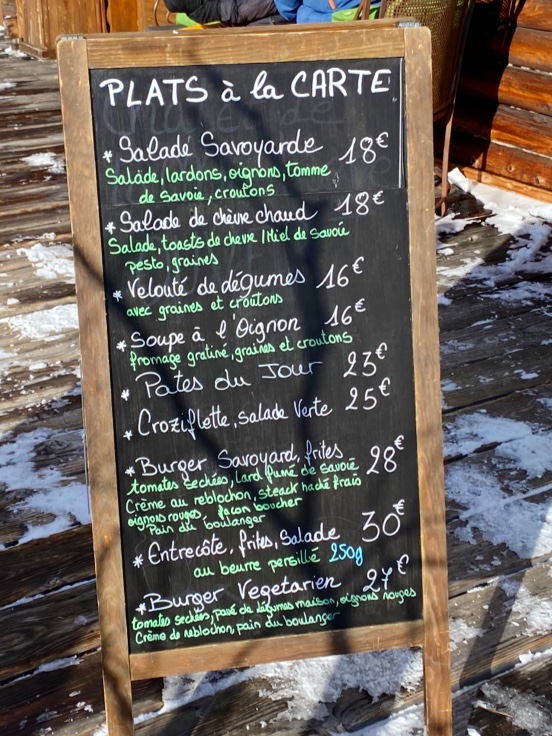 PLATS à la CARTE
* Salade Savoyarde 18€
Salade, lardons, oignons, tomme
de Savoie, croutons
* Salade de chèvre chaud 18€
Salade, toasts de chevre / Miel de Savoie
pesto, graines
* Velouté de dégumes 16€
avec graines et croûtons
* Soupe à l'Oignon 16€
fromage gratiné, graines et croutons
* Pates du Jour 23€
* Croziflette, salade Verte 25€
* Burger Savoyard, frites 28€
tomates sechées, lard fumé de savoie
Crème au reblochon, steack haché frais
oignons rouges, façon boucher
Pain du boulanger
* Entrecôte, frites, Salade 30€
au beurre persillé 250g
* Burger Vegetarien 27€
tomates sechées, pavé de légumes maison, oignons rouges
Crème de reblochon, pain du boulanger